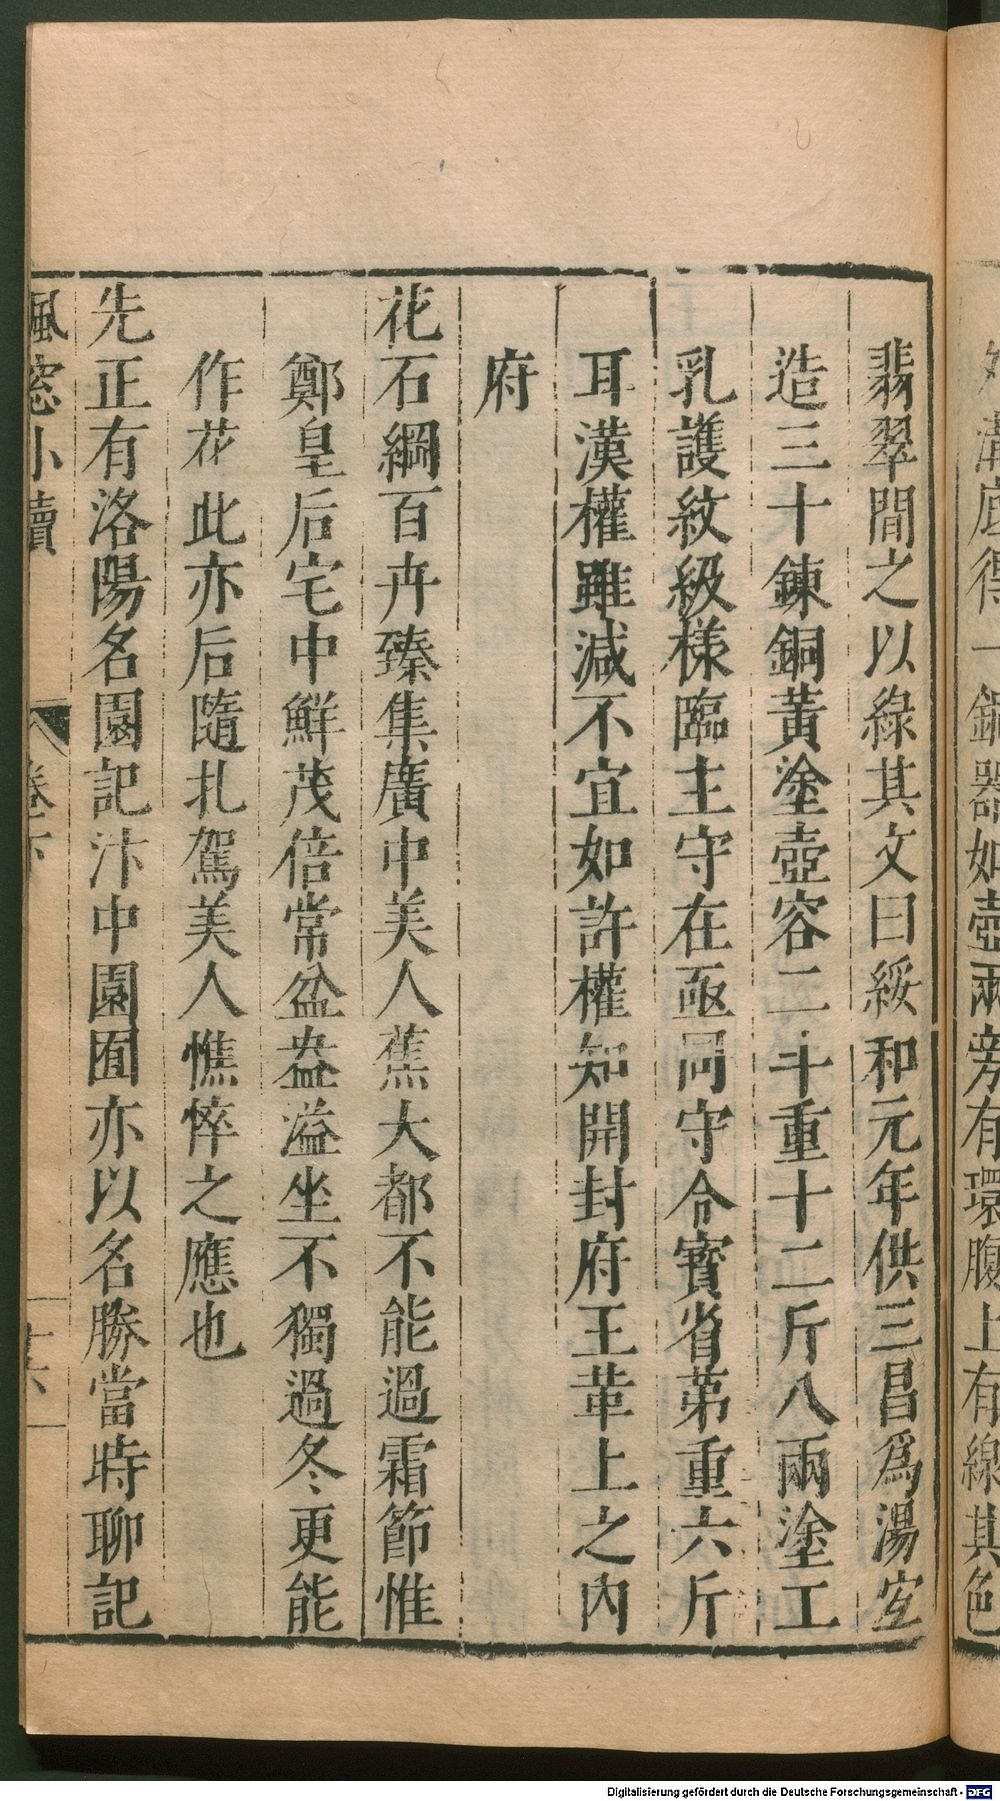 翡翠間之以綠其文曰綏和元年供三昌爲湯宐
造三十鍊銅黃塗壺容二斗重十二斤八兩塗工
乳護紋級樣臨主守在亟同守令寳省第重六斤
耳漢權雖減不宜如許權知開封府王革上之內
府
花石綱百卉臻集廣中美人蕉大都不能過霜節惟
鄭皇后宅中鮮茂倍常盆盎溢坐不獨過冬更能
作花此亦后隨扎駕美人憔悴之應也
先正有洛陽名園記汴中園囿亦以名勝當時聊記
楓窓小牘 卷下 十六
溝底得一銅器如壺兩旁有環腹上有線其色
Digitalisierung gefördert durch die Deutsche Forschungsgemeinschaft - DFG